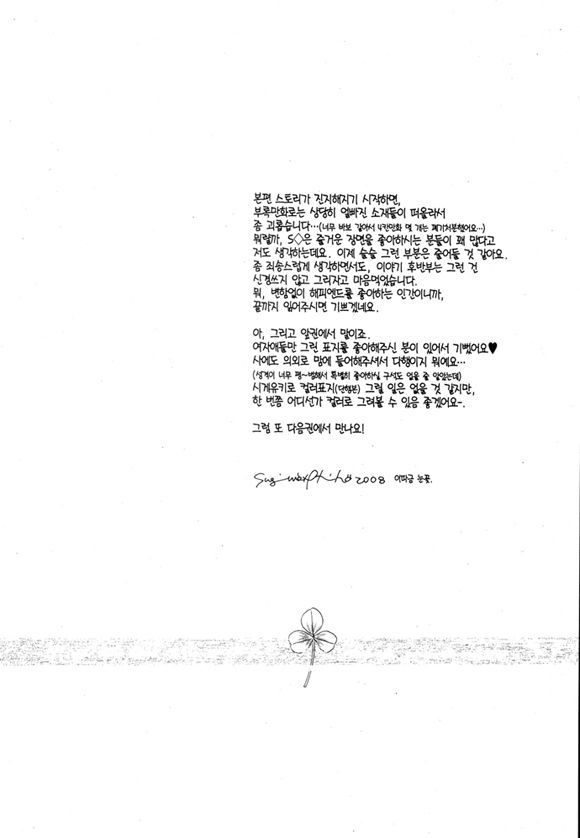 본편 스토리가 진지해지기 시작하면,
부록만화로는 상당히 얼빠진 소재들이 떠올라서
좀 괴롭습니다…(너무 바보 같아서 4칸만화 몇 개는 폐기처분했어요…)
뭐랄까, S◇은 즐거운 장면을 좋아하시는 분들이 꽤 많다고
저도 생각하는데요. 이제 슬슬 그런 부분은 줄어들 것 같아요.
좀 죄송스럽게 생각하면서도, 이야기 후반부는 그런 건
신경쓰지 않고 그리자고 마음먹었습니다.
뭐, 변함없이 해피엔드를 좋아하는 인간이니까,
끝까지 읽어주시면 기쁘겠네요.
아, 그리고 앞권에서 말이죠.
여자애들만 그린 표지를 좋아해주신 분이 있어서 기뻤어요♥
사에도 의외로 맘에 들어해주셔서 다행이지 뭐예요…
(성격이 너무 평~범해서 특별히 좋아하실 구석도 없을 줄 알았는데)
시게유키로 컬러표지(단행본) 그릴 일은 없을 것 같지만,
한 번쯤 어디선가 컬러로 그려볼 수 있음 좋겠어요~.
그럼 또 다음권에서 만나요!
2008 이따금 눈꽃.